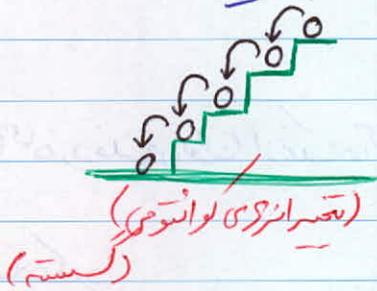 (تغییر انرژی کوانتومی)
(گسسته)